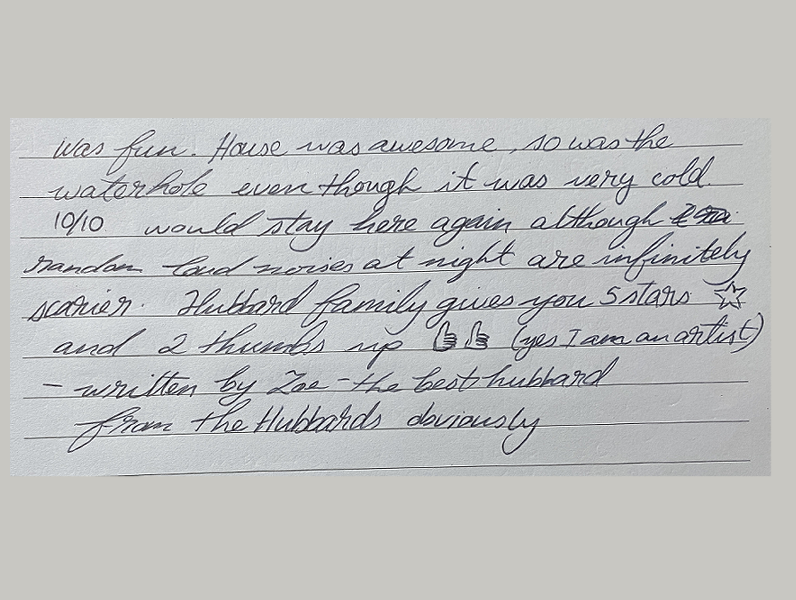 was fun. House was awesome, so was the
waterhole even though it was very cold.
10/10 would stay here again although
random loud noises at night are infinitely
scarier. Hubbard family gives you 5 stars
and 2 thumbs up 👍👍 (yes I am an artist)
- written by Zoe - the best hubbard
from the Hubbards obviously